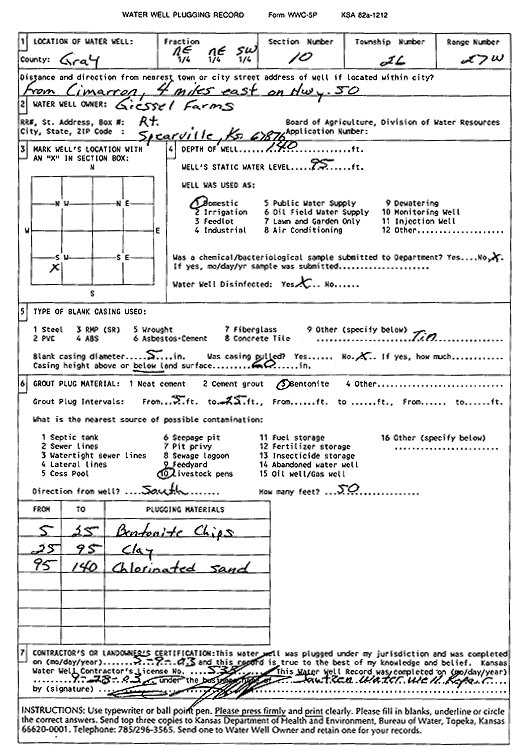 WATER WELL PLUGGING RECORD Form WWC-5P KSA 82a-1212
1 LOCATION OF WATER WELL: Fraction Section Number Township Number Range Number
County: Gray NE 1/4 NE 1/4 SW 1/4 10 26 27W
Distance and direction from nearest town or city street address of well if located within city?
From Cimarron, 4 miles east on Hwy. 50
2 WATER WELL OWNER: Giessel Farms
RR#, St. Address, Box #: Rt. Board of Agriculture, Division of Water Resources
City, State, ZIP Code : Spearville, Ks. 67876 Application Number:
3 MARK WELL'S LOCATION WITH AN "X" IN SECTION BOX:
N
N W N E
W E
S W S E
X
S
4 DEPTH OF WELL....140....ft.
WELL'S STATIC WATER LEVEL....95....ft.
WELL WAS USED AS:
1 Domestic 5 Public Water Supply 9 Dewatering
2 Irrigation 6 Oil Field Water Supply 10 Monitoring Well
3 Feedlot 7 Lawn and Garden Only 11 Injection Well
4 Industrial 8 Air Conditioning 12 Other..............
Was a chemical/bacteriological sample submitted to Department? Yes....No.X.
If yes, mo/day/yr sample was submitted.................
Water Well Disinfected: Yes.X.. No.....
5 TYPE OF BLANK CASING USED:
1 Steel 3 RMP (SR) 5 Wrought 7 Fiberglass 9 Other (specify below)
2 PVC 4 ABS 6 Asbestos-Cement 8 Concrete Tile ....Tin....
Blank casing diameter...5....in. Was casing pulled? Yes...... No.X.. If yes, how much..........
Casing height above or below land surface......60.....in.
6 GROUT PLUG MATERIAL: 1 Neat cement 2 Cement grout 3 Bentonite 4 Other...............
Grout Plug Intervals: From..5..ft. to..25..ft., From...... to ......ft., From...... to......ft.
What is the nearest source of possible contamination:
1 Septic tank 6 Seepage pit 11 Fuel storage 16 Other (specify below)
2 Sewer lines 7 Pit privy 12 Fertilizer storage
3 Watertight sewer lines 8 Sewage lagoon 13 Insecticide storage
4 Lateral lines 9 Feedyard 14 Abandoned water well
5 Cess Pool 10 Livestock pens 15 Oil well/Gas well
Direction from well? ..South.......... How many feet? ..50..........
FROM TO PLUGGING MATERIALS
5 25 Bentonite Chips
25 95 Clay
95 140 Chlorinated sand
7 CONTRACTOR'S OR LANDOWNER'S CERTIFICATION:This water well was plugged under my jurisdiction and was completed
on (mo/day/year)......5-9-03 and this record is true to the best of my knowledge and belief. Kansas
Water Well Contractor's License No. ...538...... This Water Well Record was completed on (mo/day/year)
under the business name of Water Well Repair
by (signature)
INSTRUCTIONS: Use typewriter or ball point pen. Please press firmly and print clearly. Please fill in blanks, underline or circle
the correct answers. Send top three copies to Kansas Department of Health and Environment, Bureau of Water, Topeka, Kansas
66620-0001. Telephone: 785/296-3565. Send one to Water Well Owner and retain one for your records.